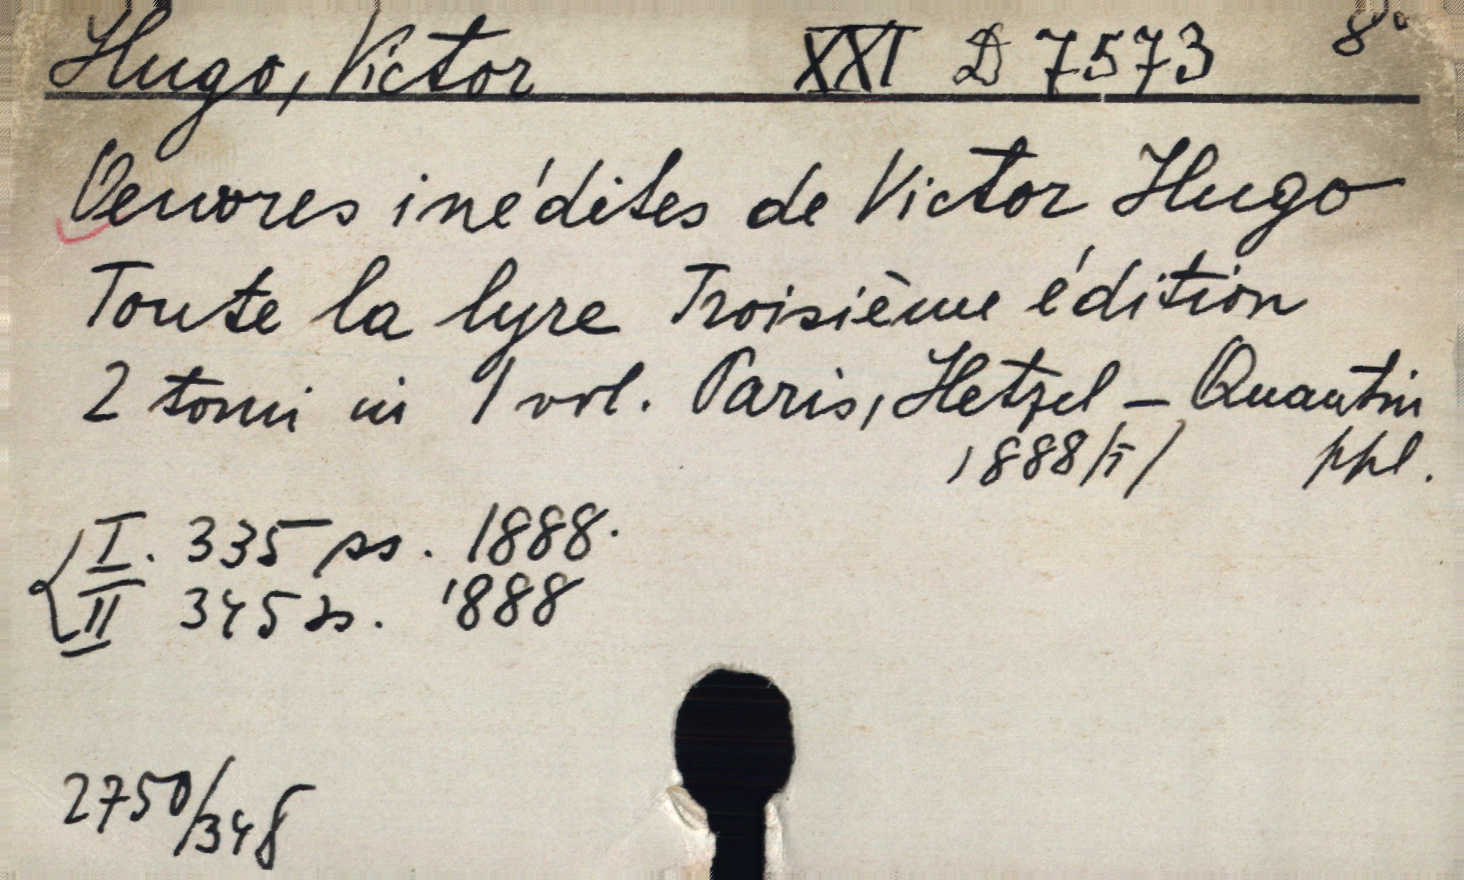 Hugo, Victor XXI D 7573 8°
Oeuvres inédites de Victor Hugo
Toute la lyre Troisième édition
2 tomi in 1 vol. Paris, Hetzel - Quantin
1888 ppl.
I. 335 ss. 1888.
II 345 ss. 1888
2750/348